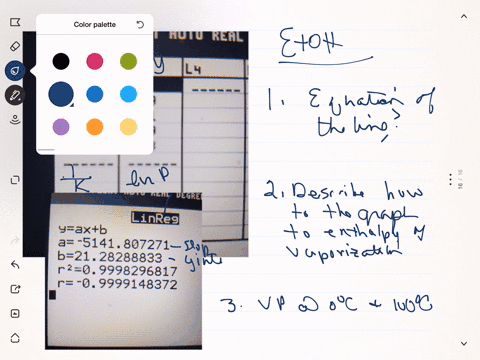 Color palette
AUTO REAL
y
L4
1/K
ln P
AUTO REAL DEGREE
LinReg
y=ax+b
a=-5141.807271 - slop
b=21.28288833 - yinte
r²=0.9998296817
r=-0.9999148372
EtOH
1. Equation of
the line?
2. Describe how
to the graph
to enthalpy of
vaporization
3. VP @ 0°C + 100°C